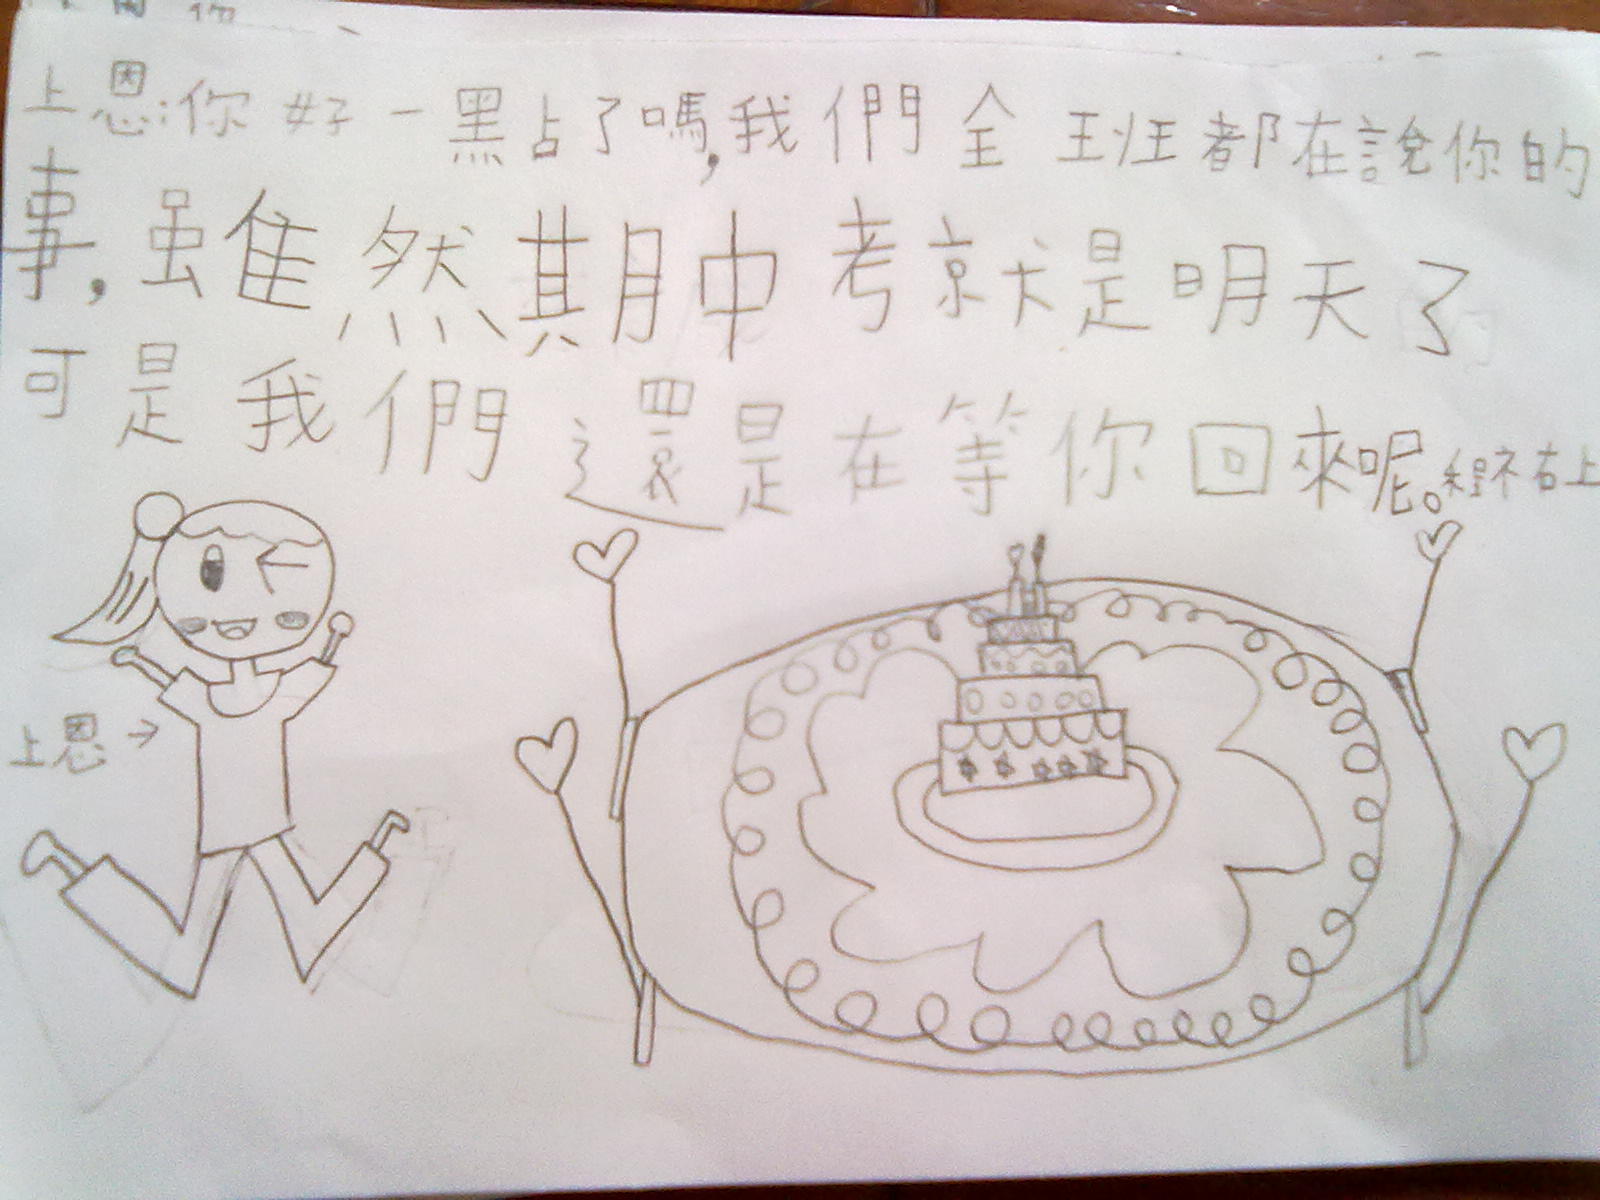 上恩:你好一點了嗎,我們全班都在說你的
事,雖然期中考就是明天了
可是我們還是在等你回來呢。程禾右上
上恩→